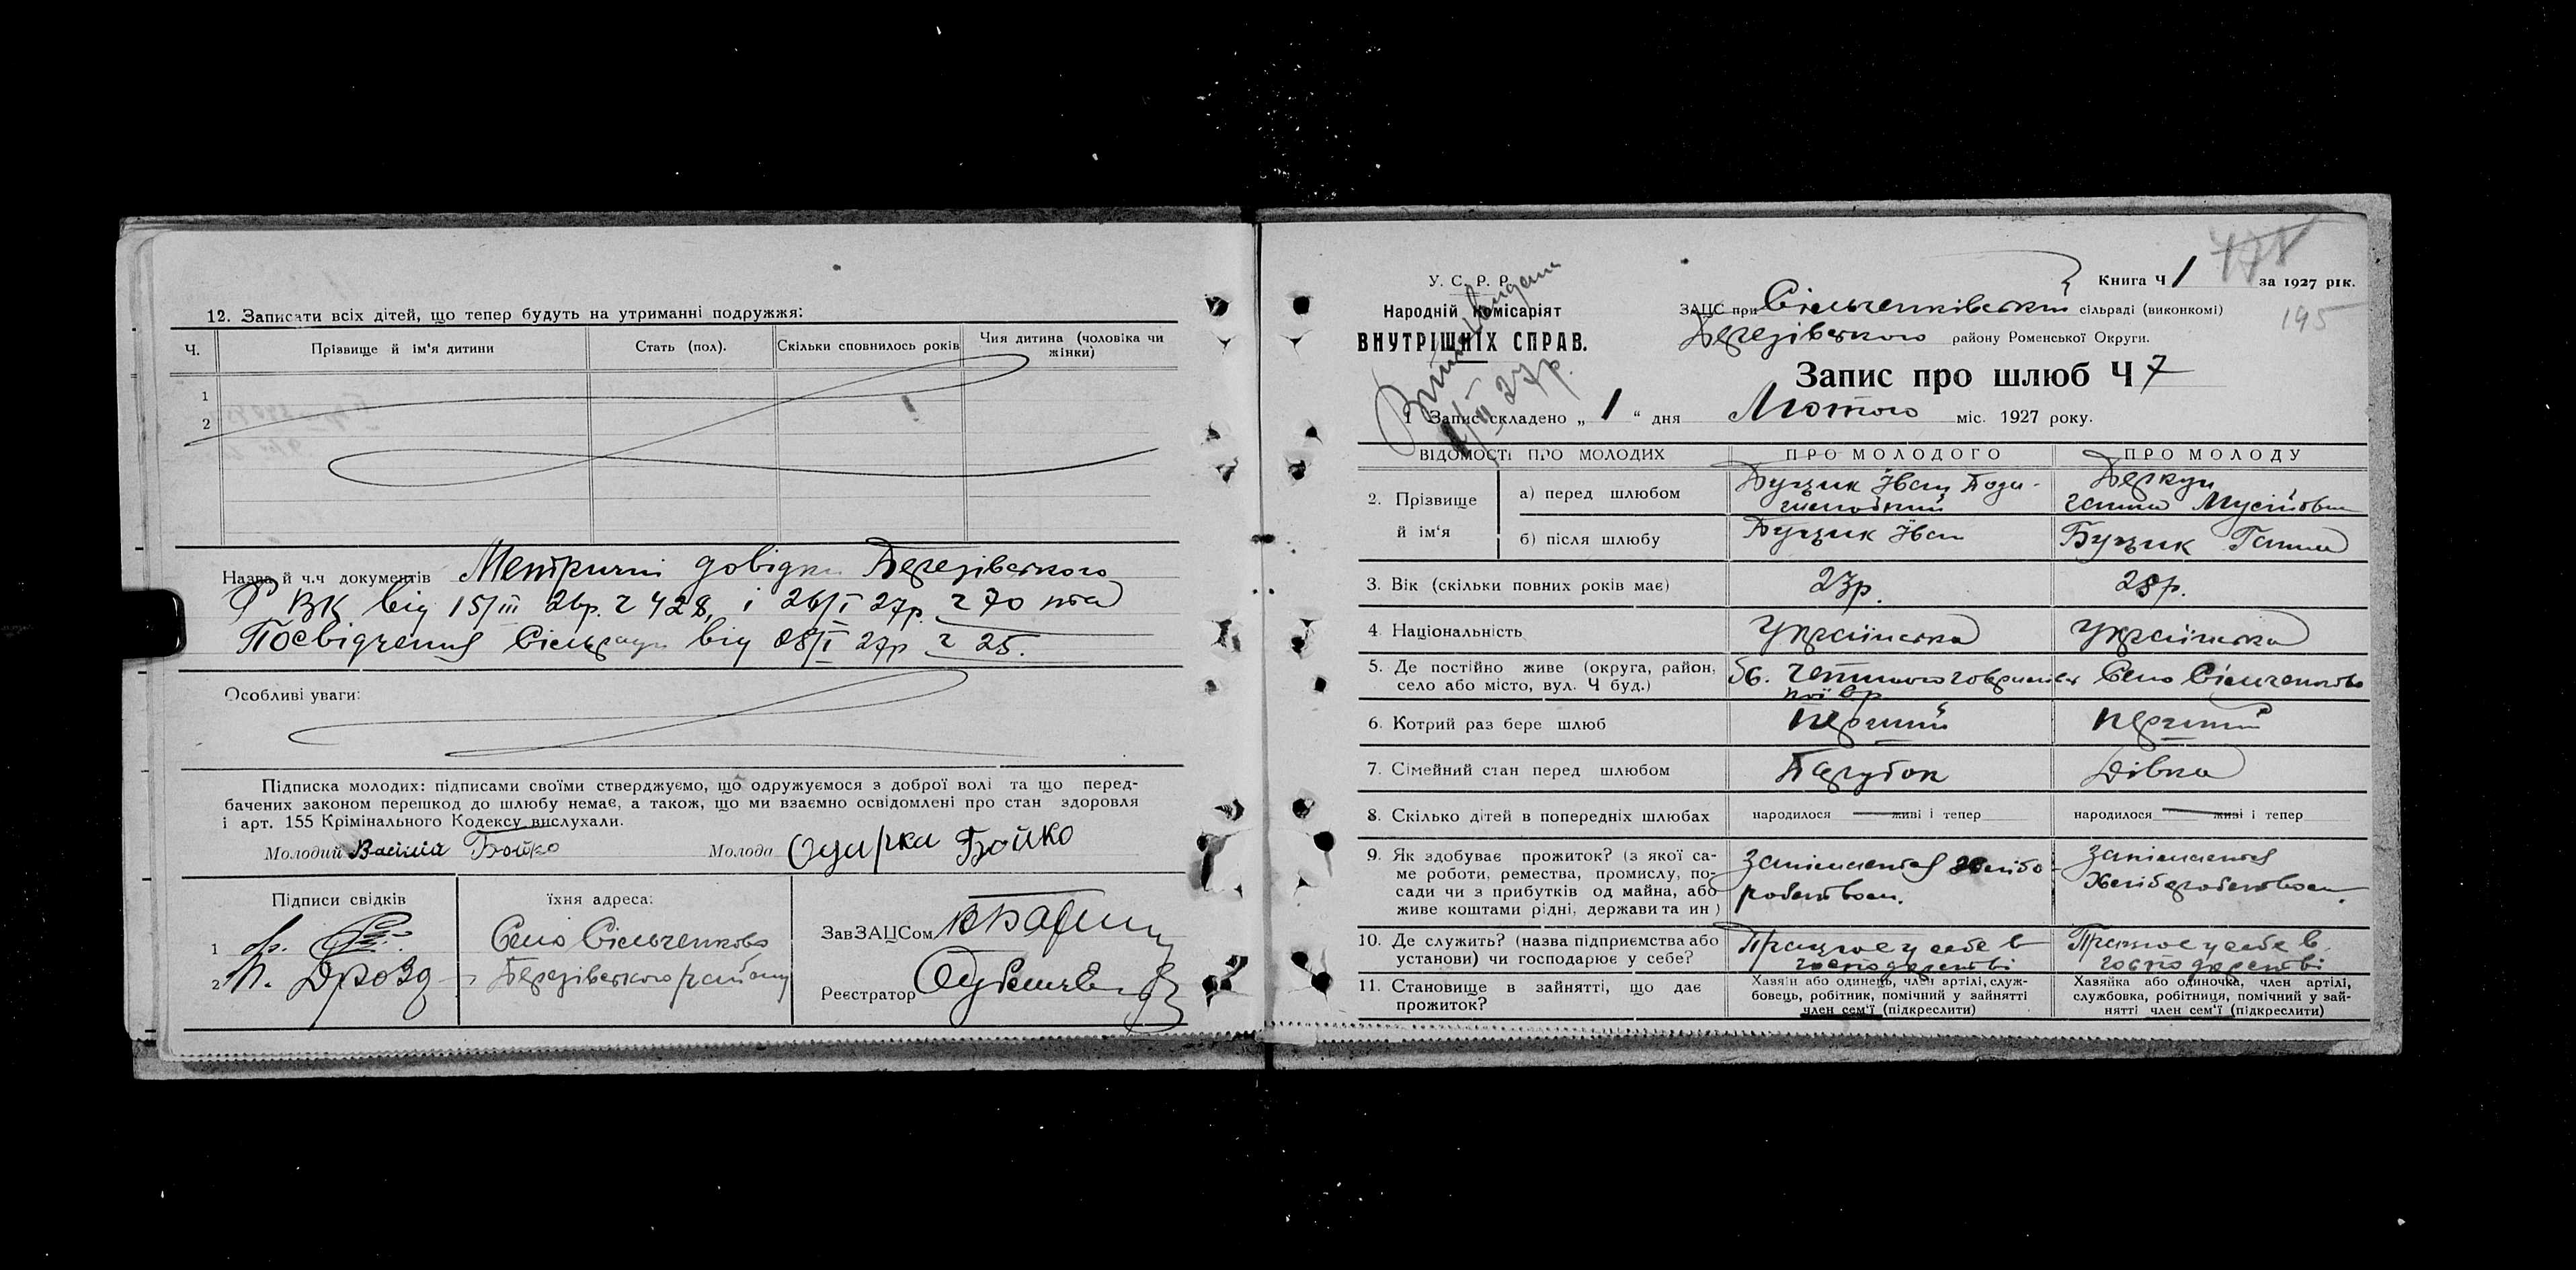 12. Записати всіх дітей, що тепер будуть на утриманні подружжя:
Ч. Прізвище й ім'я дитини Стать (пол). Скільки сповнилось років Чия дитина (чоловіка чи жінки)
1
2
Назва й ч.ч документів Метричні довідки Березівського
РВК від 15/III 26р. ч 428, і 26/I 27р. ч 70 та
Посвідчення Сільради від 28/I 27р ч 25.
Особливі уваги:
Підписка молодих: підписами своїми стверджуємо, що одружуємося з доброї волі та що перед-
бачених законом перешкод до шлюбу немає, а також, що ми взаємно освідомлені про стан здоровля
і арт. 155 Крімінального Кодексу вислухали.
Молодий Василь Бойко Молода Одарка Бойко
Підписи свідків їхня адреса:
ЗавЗАЦСом
1 Село Сільченково
2 П. Дрозд Березівського району
Реєстратор
У. С. Р. Р.
Народній Комісаріят
ВНУТРІШНІХ СПРАВ.
27р.
Книга Ч 1 за 1927 рік.
195
ЗАЦС при Сільченківській сільраді (виконкомі)
Березівського району Роменської Округи.
Запис про шлюб Ч 7
1 Запис складено „ 1 “ дня Лютого міс. 1927 року.
ВІДОМОСТІ ПРО МОЛОДИХ ПРО МОЛОДОГО ПРО МОЛОДУ
2. Прізвище й ім'я
а) перед шлюбом Буцик Іван Деркун Ганна Мусіївна
б) після шлюбу Буцик Іван Буцик Ганна
3. Вік (скільки повних років має) 23р. 28р.
4. Національність Українська Українська
5. Де постійно живе (округа, район,
село або місто, вул. Ч буд.) Село Сільченково
6. Котрий раз бере шлюб перший перший
7. Сімейний стан перед шлюбом Парубок Дівка
8. Скілько дітей в попередніх шлюбах народилося живі і тепер народилося живі і тепер
9. Як здобуває прожиток? (з якої са-
ме роботи, ремества, промислу, по-
сади чи з прибутків од майна, або
живе коштами рідні, держави та ин)
Займається хлібо
робством.
Займається
Хліборобством.
10. Де служить? (назва підприємства або
установи) чи господарює у себе?
Працює у себе в
господарстві
Працює у себе в
господарстві
11. Становище в зайнятті, що дає
прожиток?
Хазяїн або одинець, член артілі, служ-
бовець, робітник, помічний у зайнятті
член сем'ї (підкреслити)
Хазяйка або одиночка, член артілі,
службовка, робітниця, помічний у зай-
нятті член сем'ї (підкреслити)